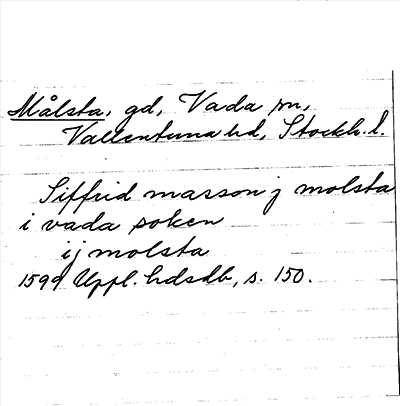 Målsta, gd, Vada sn,
Vallentuna hd, Stockh. l.
Siffrid marson j molsta
i vada soken
ij molsta
1599 Uppl. hdsdb, s. 150.